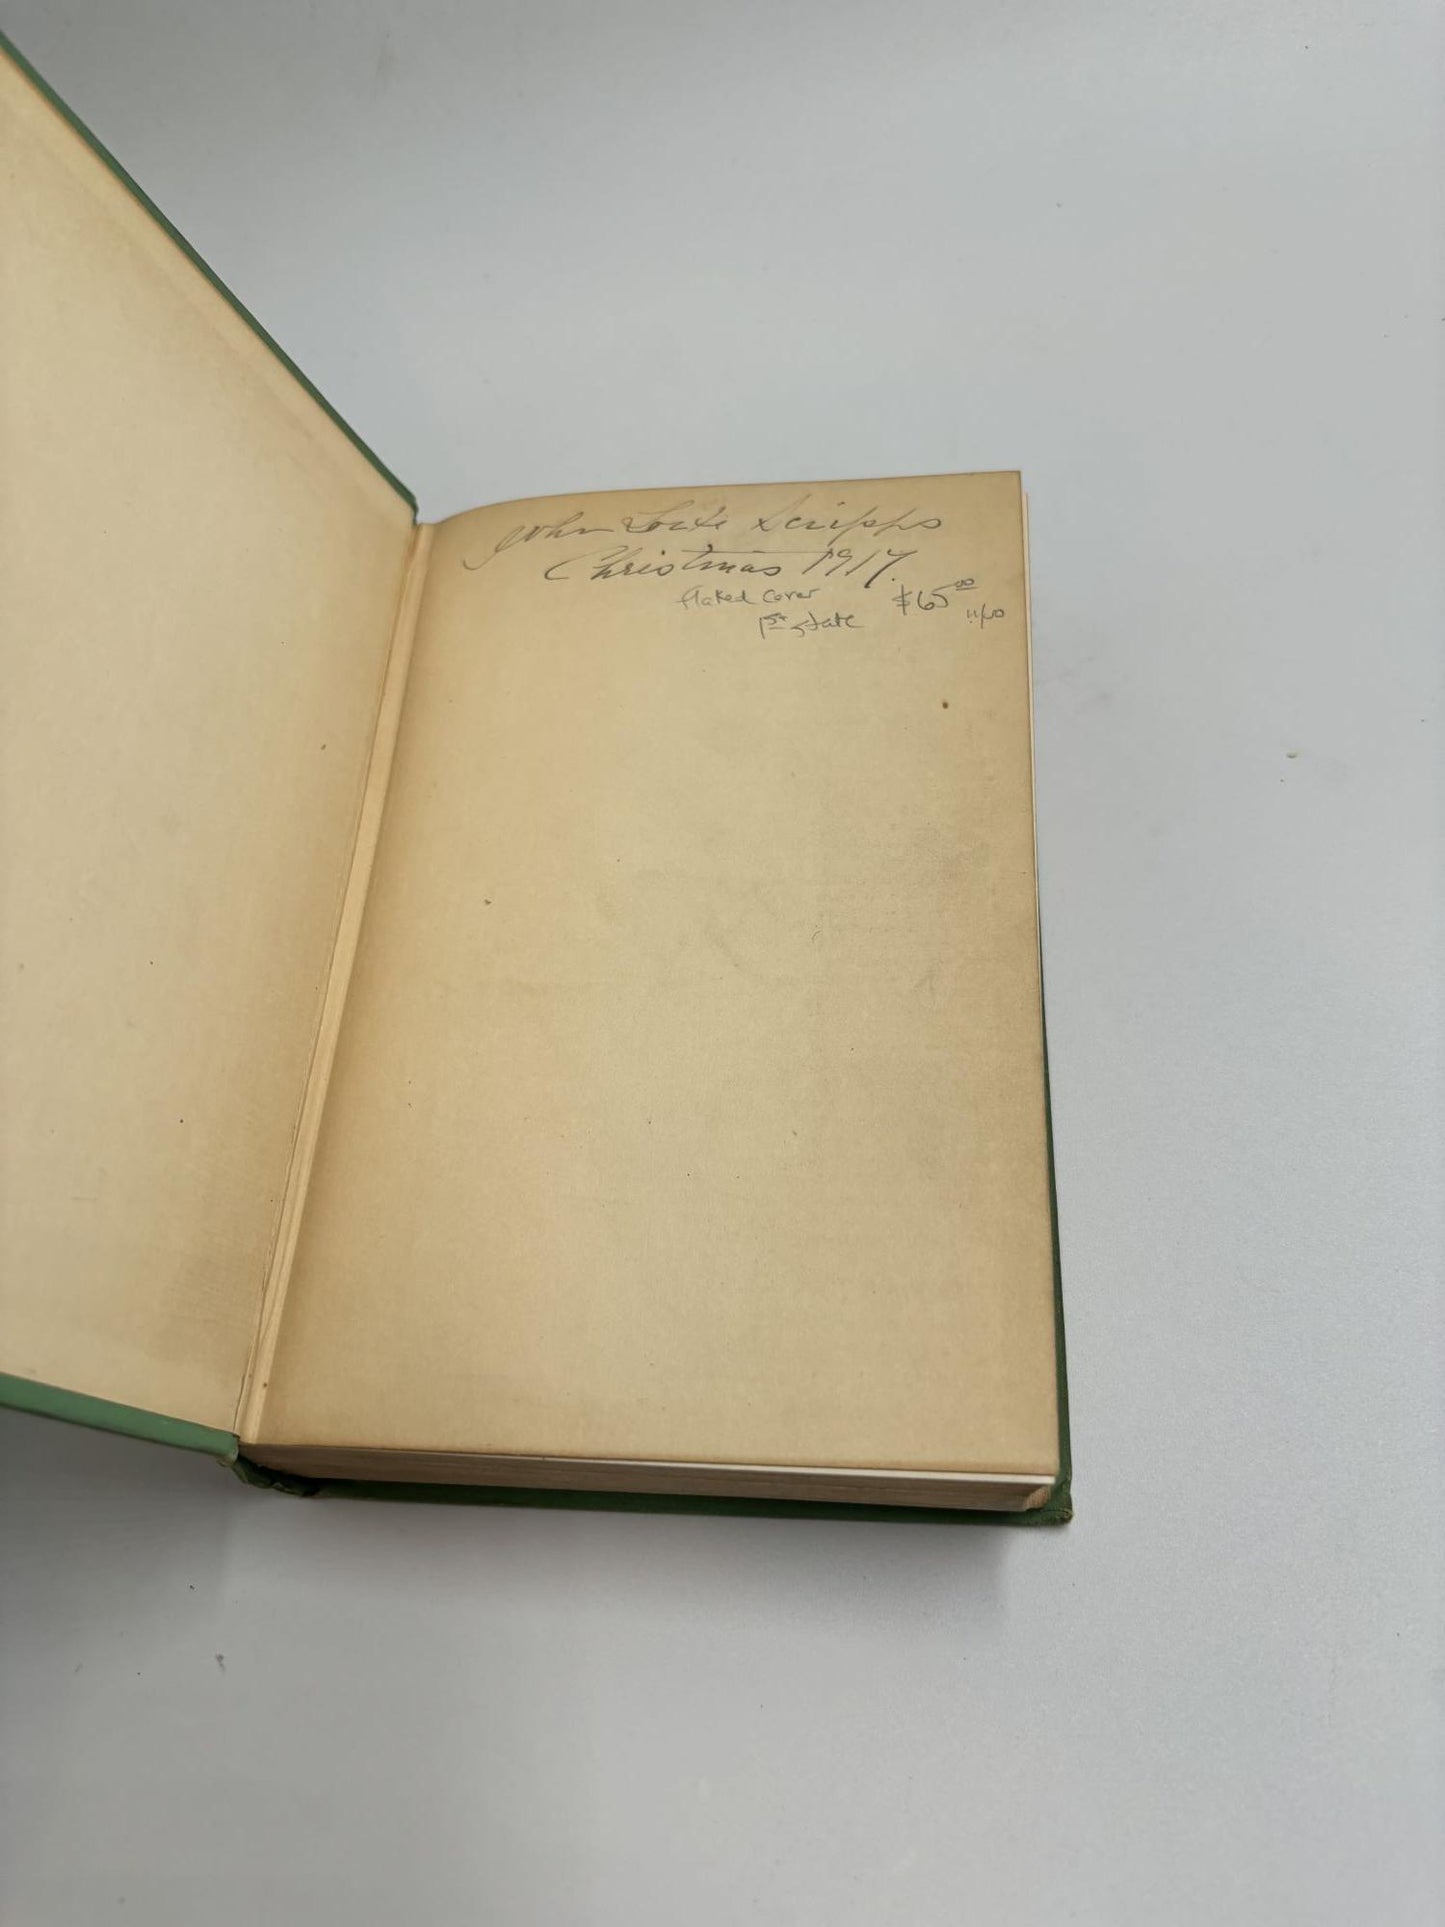 John Locke Scripps
Christmas 1917.
flaked cover $65.00
1st state